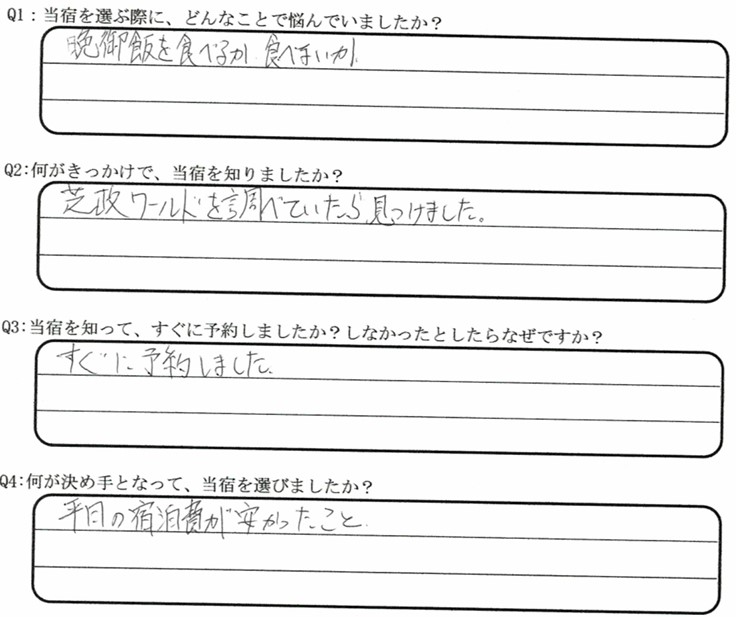 Q1：当宿を選ぶ際に、どんなことで悩んでいましたか？
晩御飯を食べるか 食べないか。
Q2:何がきっかけで、当宿を知りましたか？
芝政ワールドを調べていたら、見つけました。
Q3:当宿を知って、すぐに予約しましたか？しなかったとしたらなぜですか？
すぐに予約しました。
Q4:何が決め手となって、当宿を選びましたか？
平日の宿泊費が安かったこと。